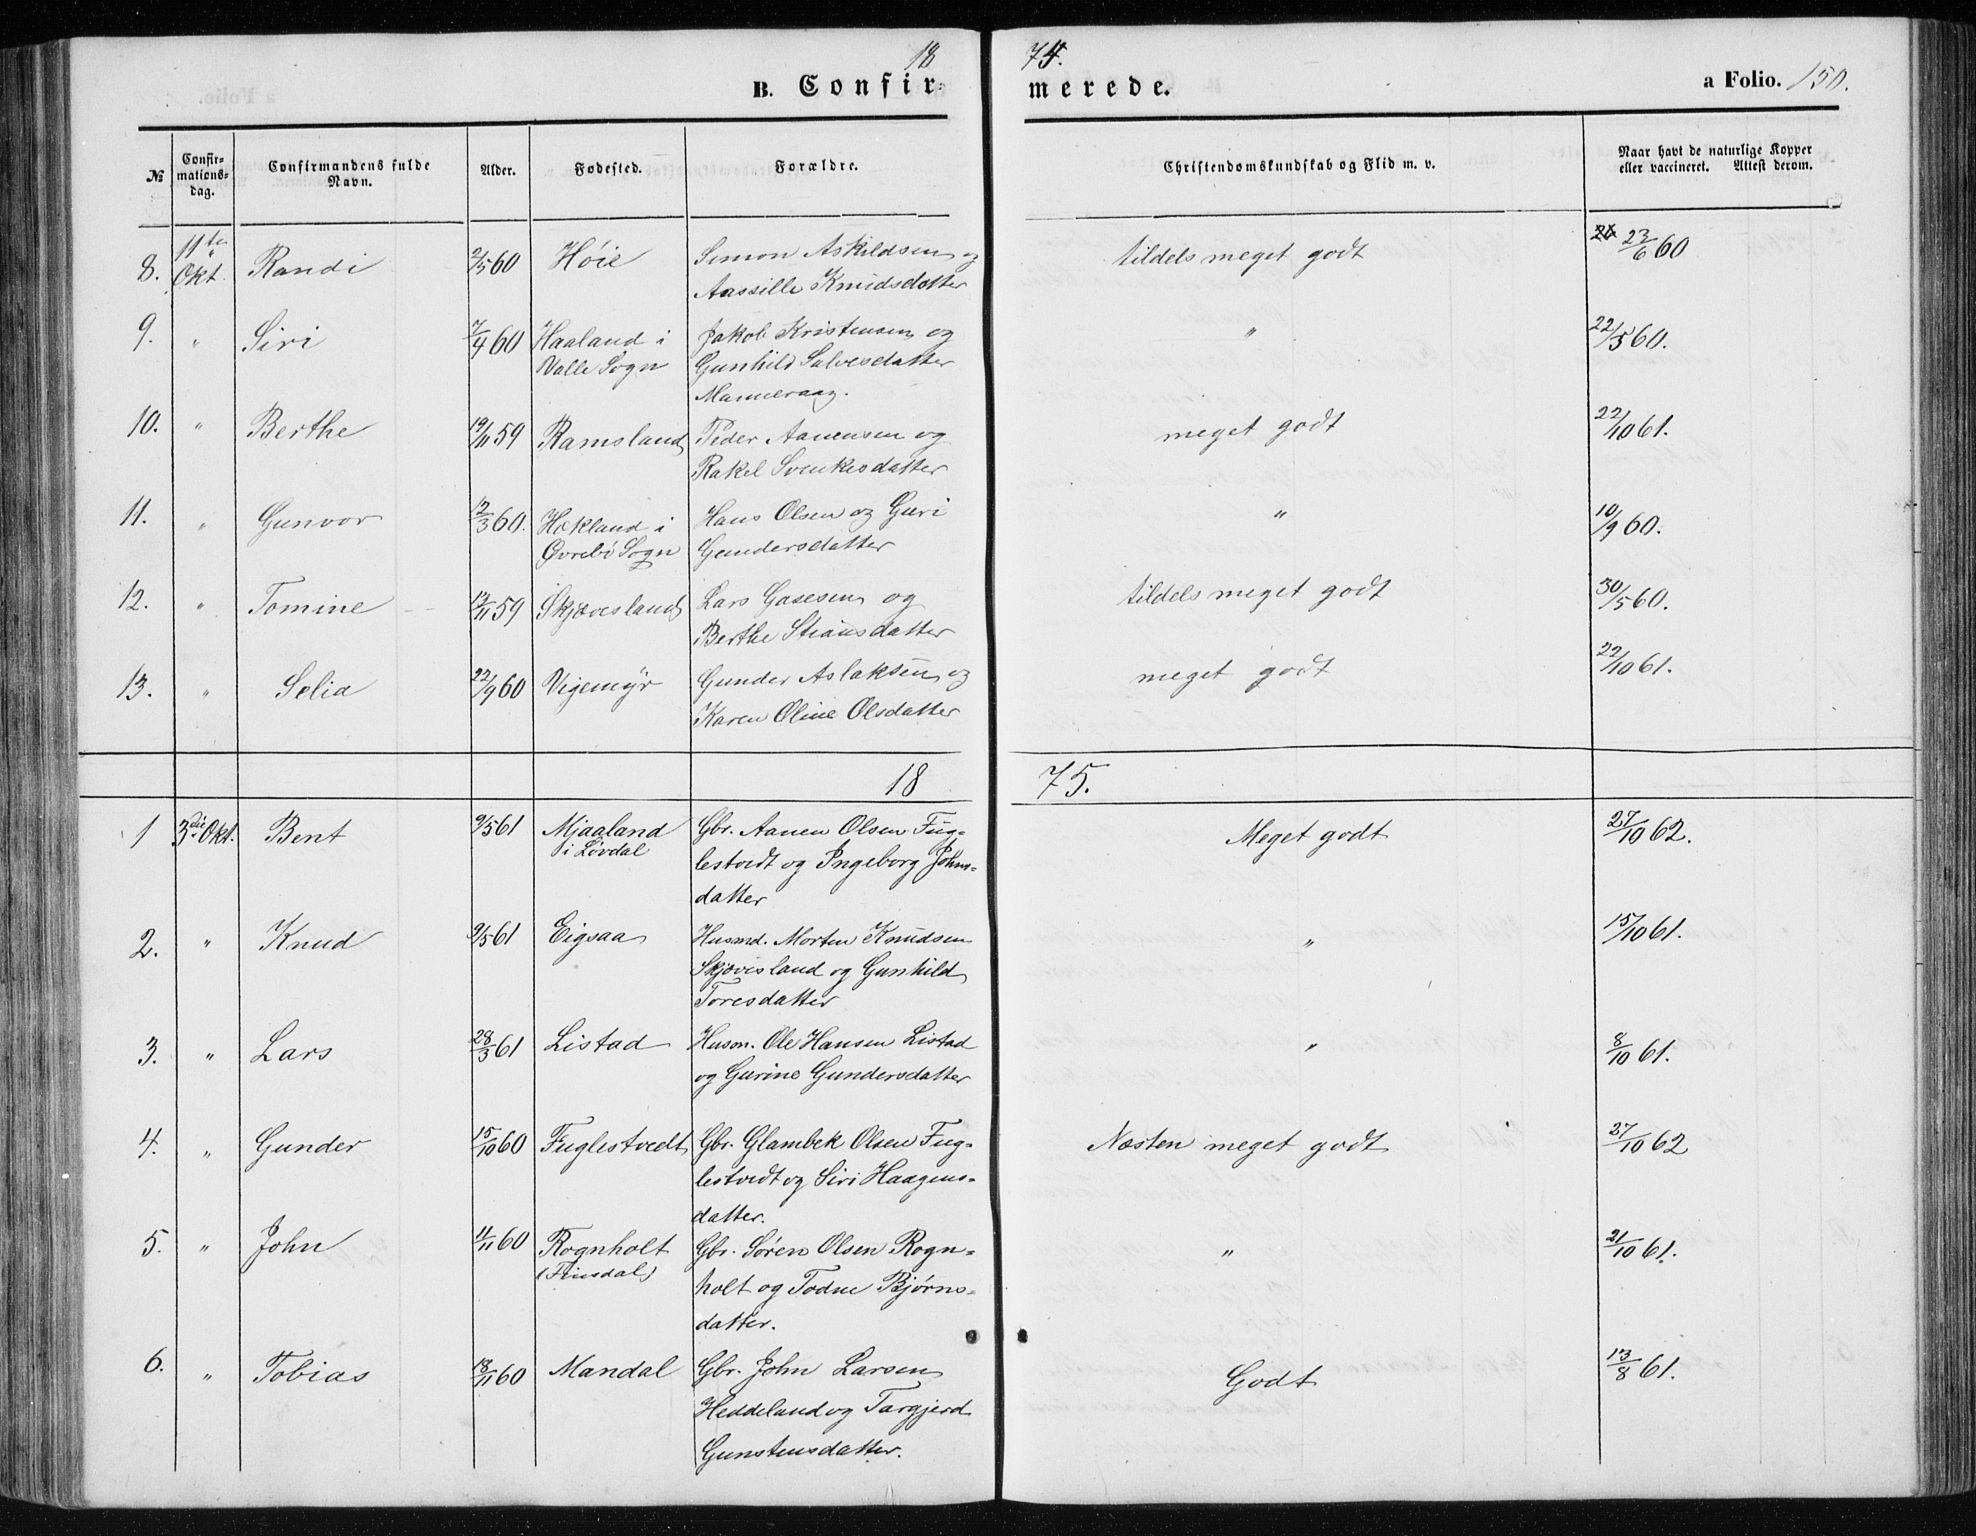 18 74.
B. Confir- merede. a Folio. 150.
№ Confir- mations- dag. Confirmandens fulde Navn. Alder. Fødested. Forældre. Christendomskundskab og Flid m. v. Naar havt de naturlige Kopper eller vaccineret. Attest derom.
8. 11te Okt. Randi 2/5 60 Høie Simon Askildsen og tildels meget godt 23/6 60
Aassille Knudsdatter
9. " Siri 7/4 60 Haaland i Jakob Kristensen og " 22/5 60.
Valle Sogn Gunhild Salvesdatter
Manneraag.
10. " Berthe 19/11 59 Ramsland Peder Aanensen og meget godt 22/10 61.
Rakel Svenkesdatter
11. " Gunvor 12/3 60. Hokland i Hans Olsen og Guri " 10/9 60.
Øvrebø Sogn Gundersdatter
12. " Tomine 13/11 59 Skjævesland Lars Gasesen og tildels meget godt 30/5 60.
Berthe Stiansdatter
13. " Selia 22/9 60 Vigemyr Gunder Aslaksen og meget godt 22/10 61.
Karen Oline Olsdatter
18 75.
1 3die Okt. Bent 9/5 61 Mjaaland Gbr. Aanen Olsen Fug- Meget godt 27/10 62.
i Løvdal lestvedt og Ingeborg Johns-
datter
2. " Knud 9/5 61 Eigsaa Husmd. Morten Knudsen " 15/10 61.
Skjævesland og Gunhild
Toresdatter
3. " Lars 28/3 61 Listad Husm. Ole Hansen Listad " 8/10 61.
og Gurine Gundersdatter
4. " Gunder 15/10 60 Fuglestvedt Gbr. Glambek Olsen Fug- Næsten meget godt 27/10 62
lestvedt og Siri Haagens-
datter.
5. " John 4/11 60 Rognholt Gbr. Søren Olsen Rogn- " 21/10 61.
(Finsdal) holt og Todne Bjørns-
datter.
6. " Tobias 18/11 60 Mandal Gbr. John Larsen Godt 13/8 61.
Heddeland og Targjerd
Gunstensdatter.